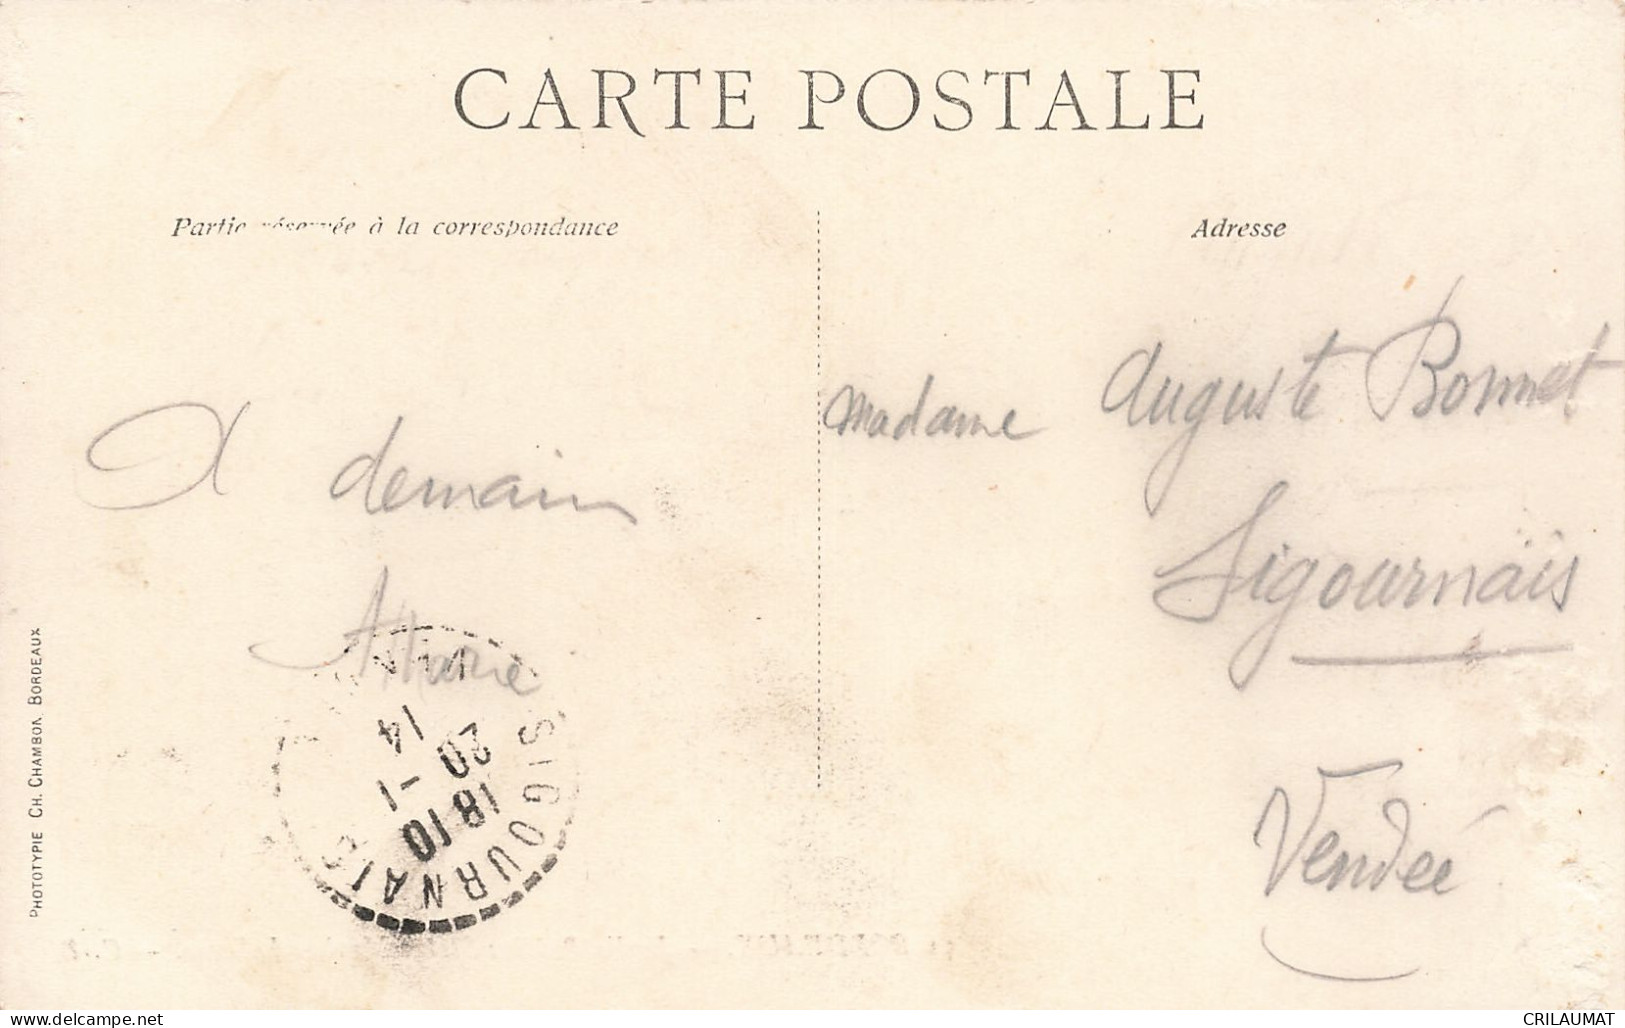 CARTE POSTALE
Partie réservée à la correspondance
Adresse
A demain
Marie
Madame Auguste Bonnet
Sigournais
Vendée
SIGOURNAIS
18 10
20 -1
14
PHOTOTYPIE CH. CHAMBON, BORDEAUX
www.delcampe.net
CRILAUMAT